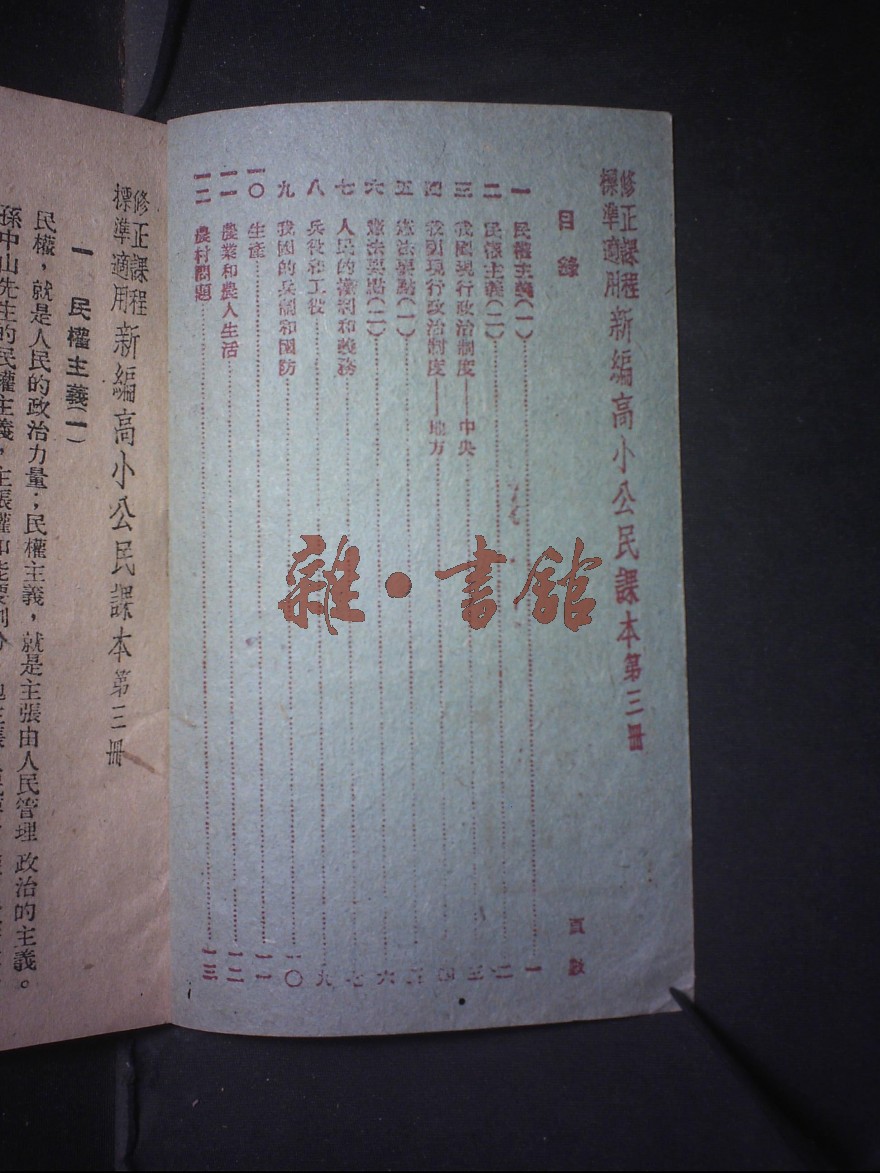 修正課程標準適用 新編高小公民課本第三冊
目錄 頁數
一 民權主義(一)⋯⋯一
二 民權主義(二)⋯⋯二
三 我國現行政治制度——中央⋯⋯三
四 我國現行政治制度——地方⋯⋯四
五 憲法要點(一)⋯⋯五
六 憲法要點(二)⋯⋯六
七 人民的權利和義務⋯⋯七
八 兵役和工役⋯⋯九
九 我國的兵制和國防⋯⋯一〇
一〇 生產⋯⋯一一
一一 農業和農人生活⋯⋯一二
一二 農村問題⋯⋯一三
雜·書館
修正課程標準適用 新編高小公民課本第三冊
一 民權主義(一)
民權,就是人民的政治力量;民權主義,就是主張由人民管理政治的主義。
孫中山先生的民權主義,主張權和能要劃分